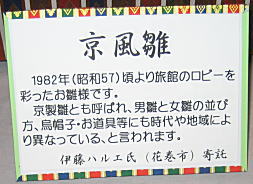 京風雛
1982年(昭和57)頃より旅館のロビーを
彩ったお雛様です。
京製雛とも呼ばれ、男雛と女雛の並び
方、烏帽子・お道具等にも時代や地域によ
り異なっている、と言われます。
伊藤ハルエ氏(花巻市)寄託